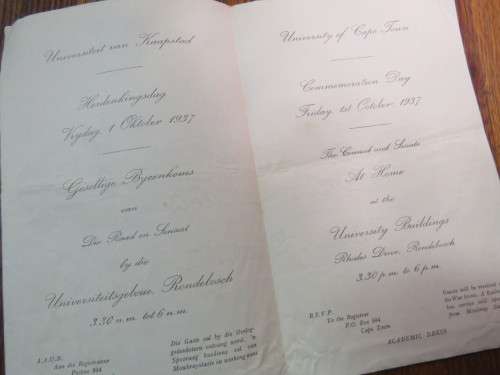 Universiteit van Kaapstad
Herdenkingsdag
Vrydag, 1 Oktober 1937
Gesellige Byeenkoms
van
Die Raad en Senaat
by die
Universiteitsgeboue, Rondebosch
3.30 n.m. tot 6 n.m.
A.A.U.B.
Aan die Registrateur
Posbus 594
Die Gaste sal by die Oorlog-
gedenksteen ontvang word. 'n
Spoorweg busdiens sal van
Mowbraystasie in werking wees
University of Cape Town
Commemoration Day
Friday, 1st October, 1937
The Council and Senate
At Home
at the
University Buildings
Rhodes Drive, Rondebosch
3.30 p.m. to 6 p.m.
R.S.V.P.
To the Registrar
P.O. Box 594,
Cape Town
Guests will be received
the War Stone. A
bus service will
from Mowbray
ACADEMIC DRESS